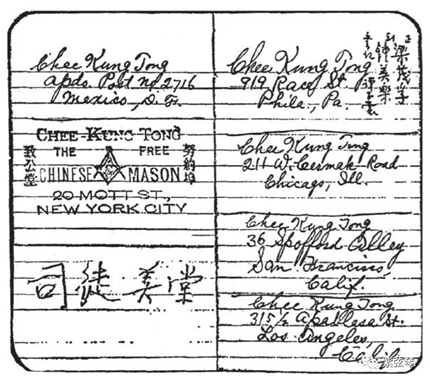 Chee Kung Tong
Apdo. Post no 2716
Mexico, D. F.
CHEE KUNG TONG
THE FREE
CHINESE MASON
致公堂
紐約埠
20 MOTT ST,
NEW YORK CITY
司徒美堂
Chee Kung Tong
919 Race St.
Phila., Pa.
Chee Kung Tong
211 W. Cermak Road
Chicago, Ill.
Chee Kung Tong
36 Spofford Alley
San Francisco
Calif.
Chee Kung Tong
315½ Apablasa St.
Los Angeles,
Calif.